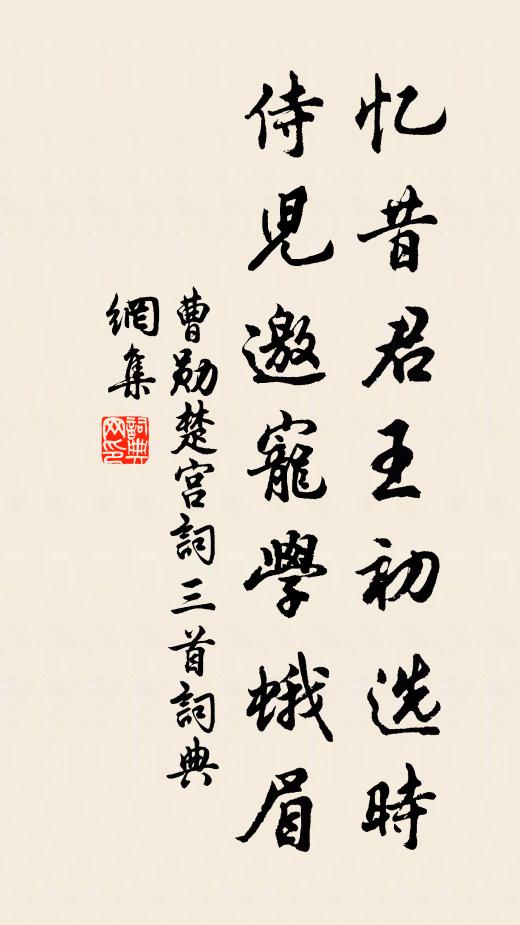 忆昔君王初选時
侍児邀寵學蛾眉
曹勋楚宫詞三首詞典
網集
詞典网印